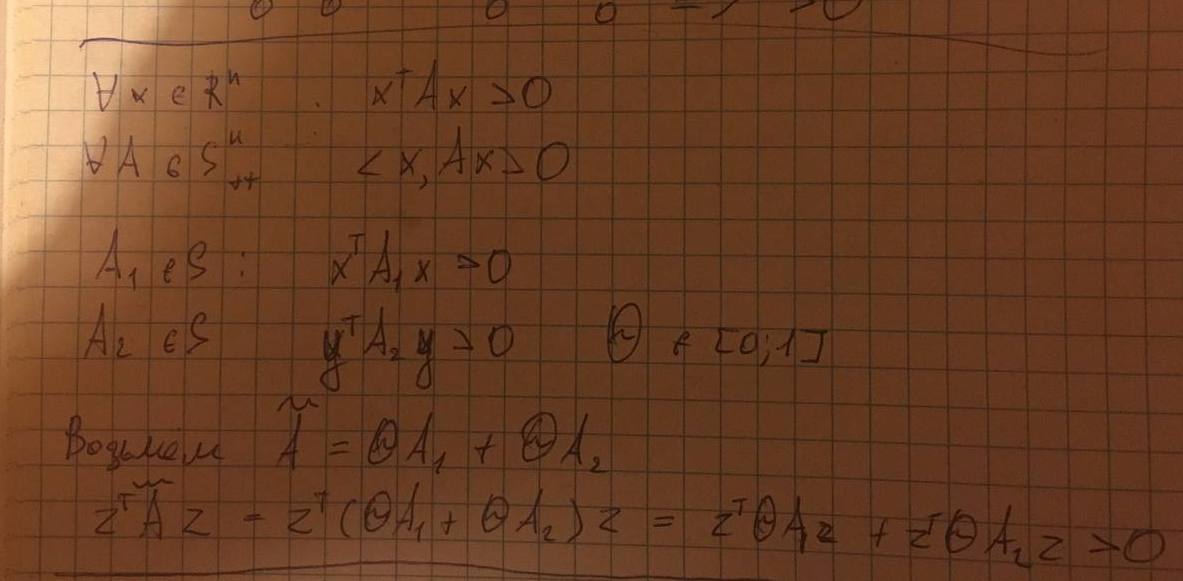 ∀x ∈ Rⁿ . xᵀAx > 0
∀A ∈ Sⁿ₊₊ <x, Ax> > 0
A₁ ∈ S : xᵀA₁x > 0
A₂ ∈ S yᵀA₂y > 0 Θ ∈ [0;1]
Возьмём Ã = ΘA₁ + ΘA₂
zᵀÃz = zᵀ(ΘA₁ + ΘA₂)z = zᵀΘA₁z + zᵀΘA₂z > 0